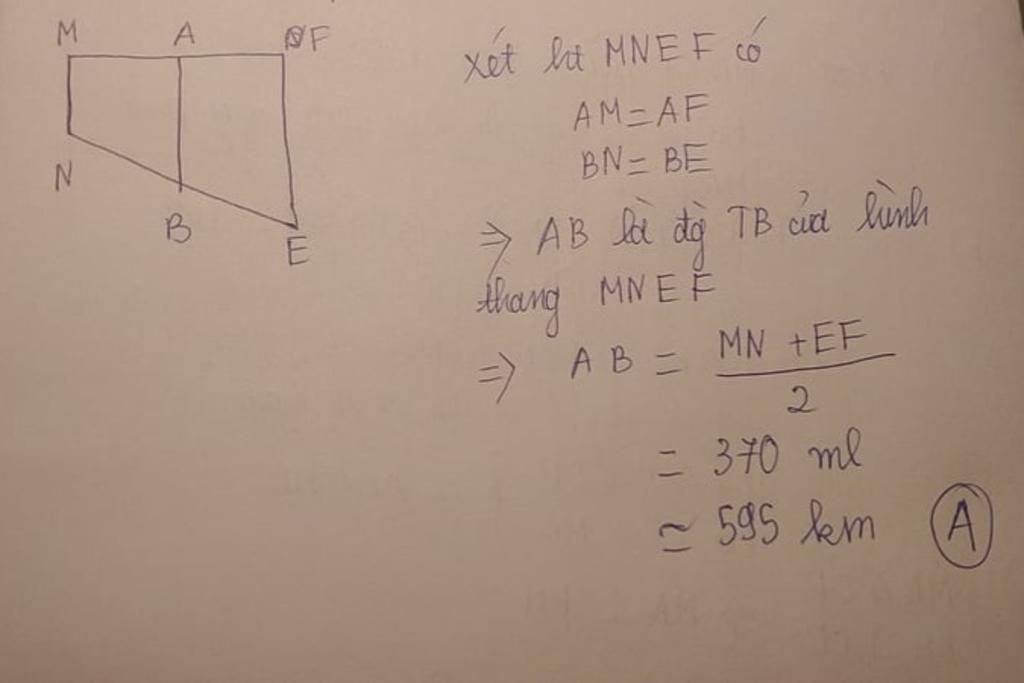 M A F
N
B
E
xét ht MNEF có
AM = AF
BN = BE
=> AB là đg TB của hình
thang MNEF
=> AB = MN + EF
2
= 370 ml
≃ 595 km A